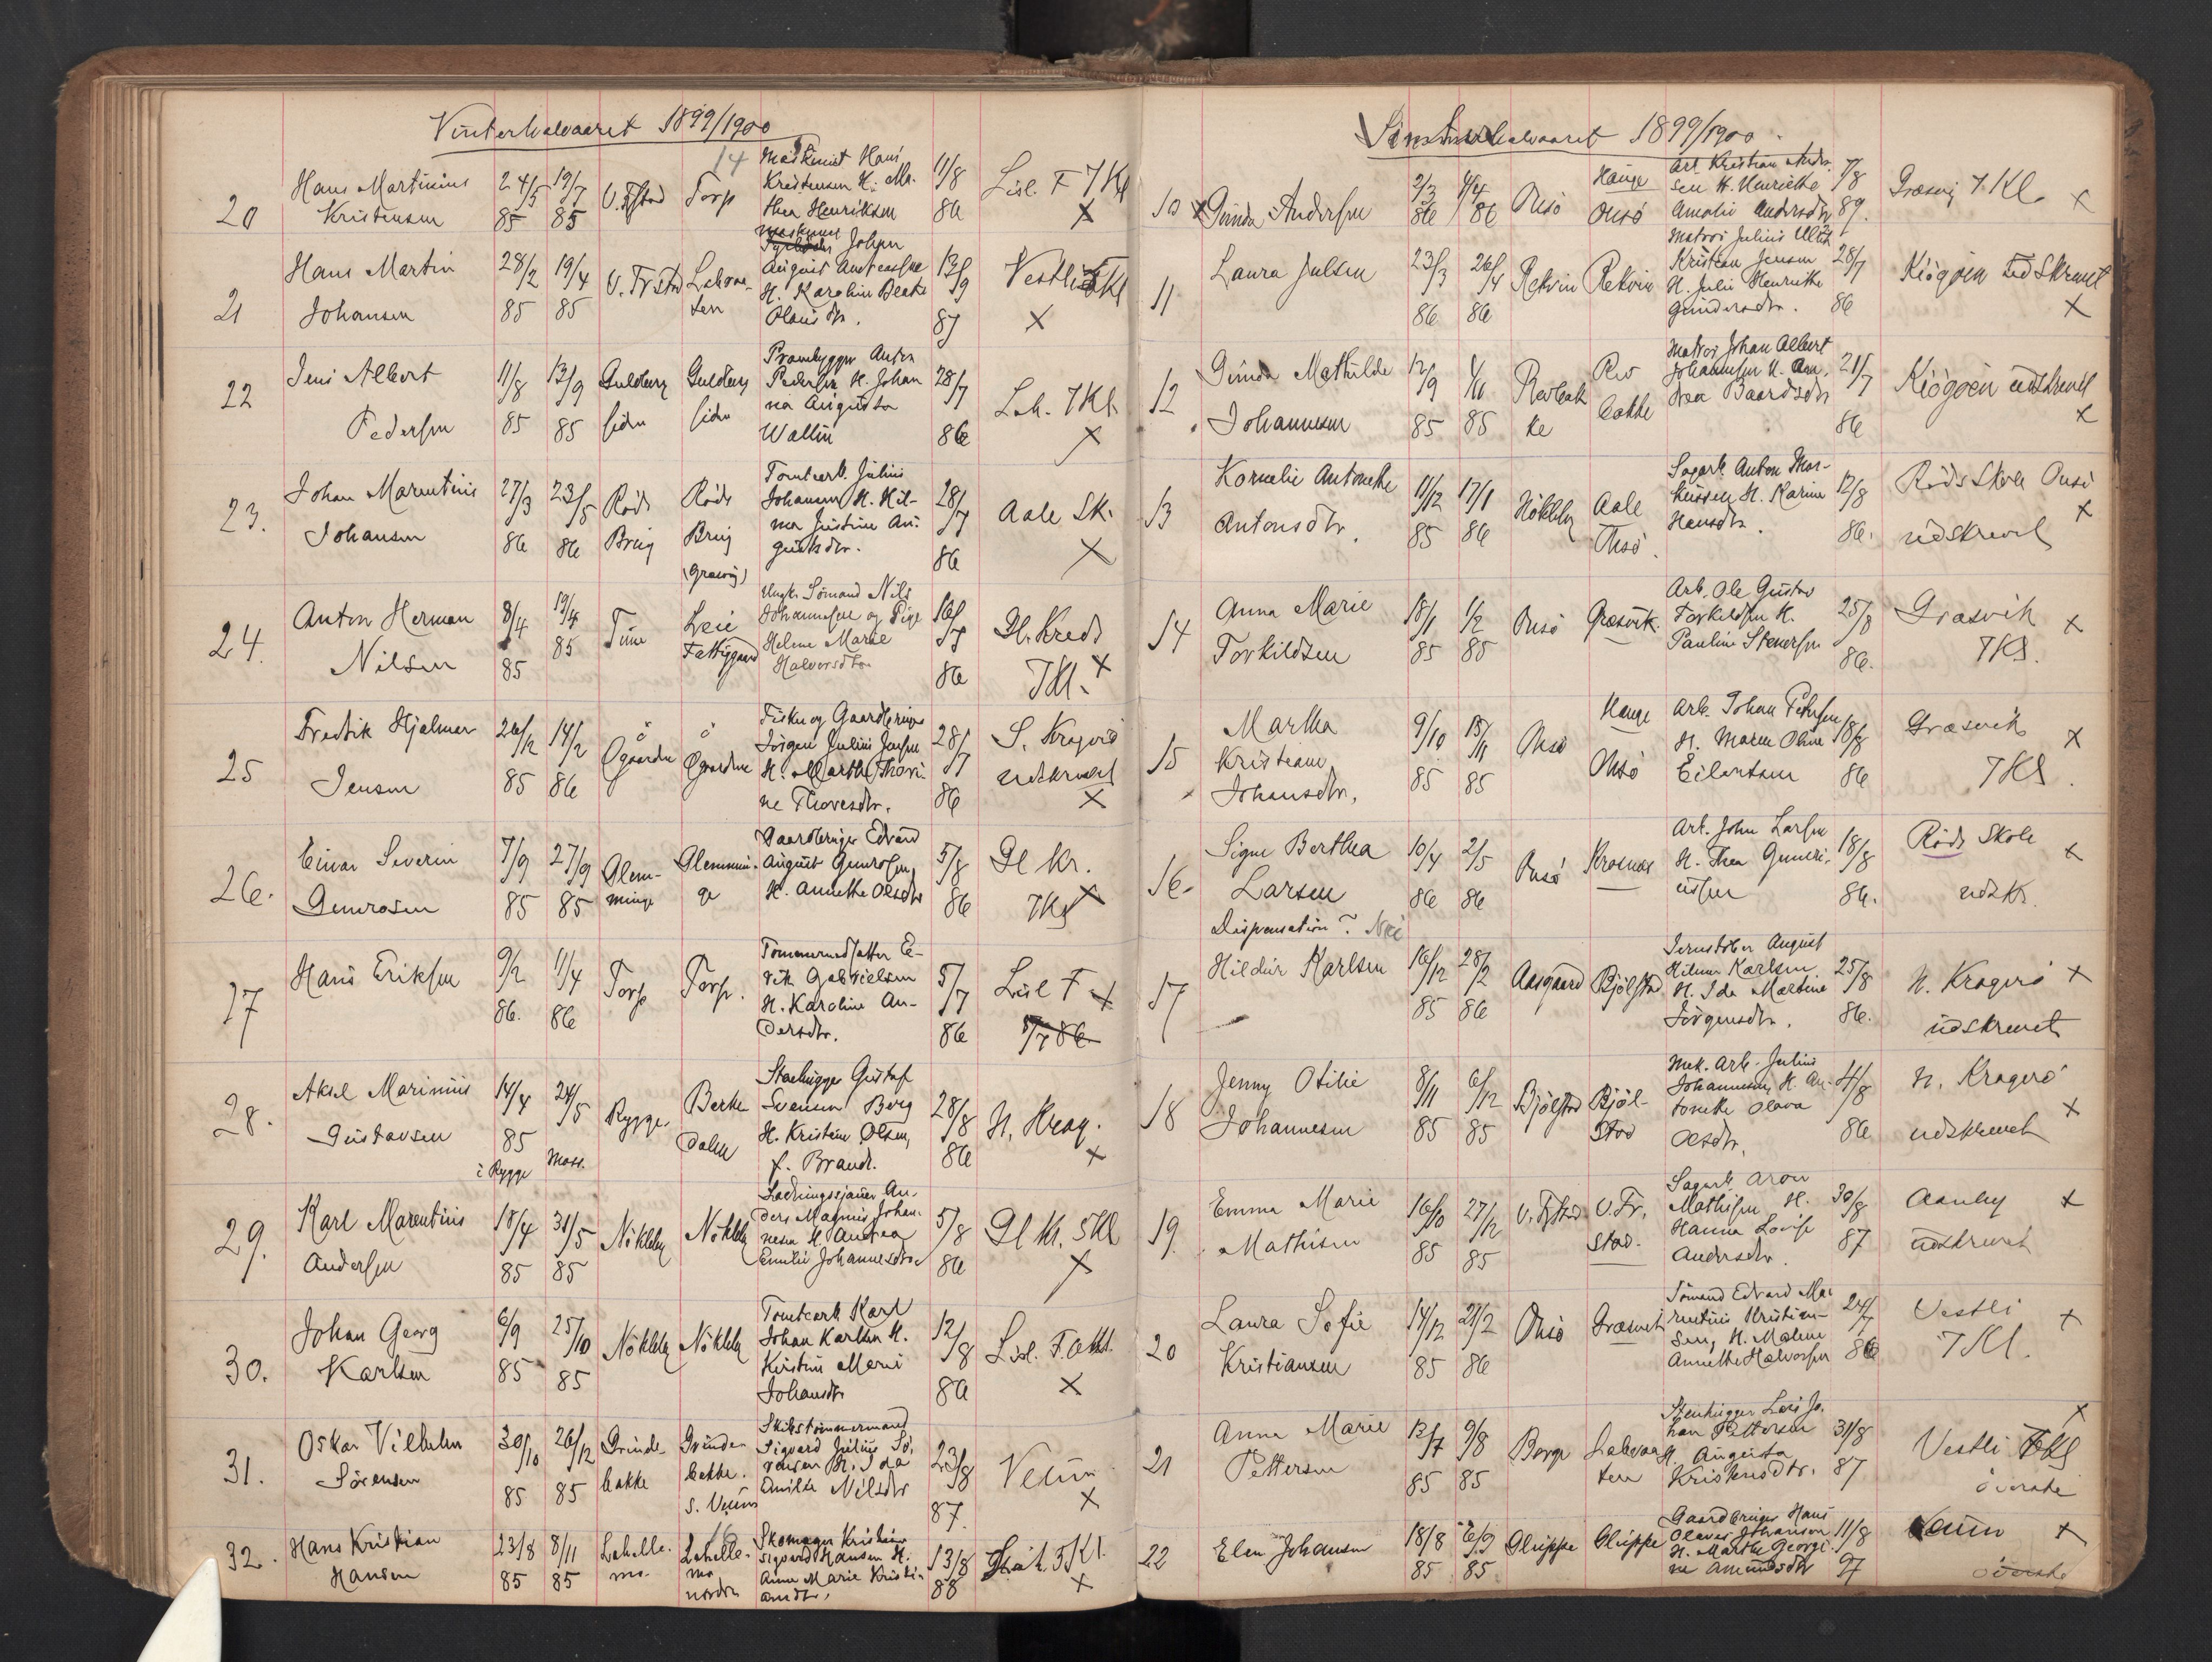 Vinterhalvaaret 1899/1900
14
20
Hans Martinius
Kristensen
24/5
85
19/7
85
V. Frstad
Torp
Maskinist Hans
Kristensen H. Ma-
thea Henriksen
11/8
86
Lisl. F 7 Kl
X
21
Hans Martin
Johansen
28/2
85
19/4
85
V. Frstad
Lahvoo-
ten
Johan
August Andreassen
H. Karoline Beate
Olausdtr.
13/9
87
Vestli 5 Kl
X
22
Jens Albert
Pedersen
11/8
85
13/9
85
Guldberg
siden
Guldberg
siden
Prambygger Anton
Pedersen H. Johan
na Augusta
Wallin
28/7
86
Lah. 7 Kl.
X
23.
Johan Marentius
Johansen
27/3
86
23/5
86
Röds
Brug
Röds
Brug
(Græsvig)
Tomtearb. Julius
Johansen H. Hil-
ma Justine Au-
gustsdtr.
28/7
86
Aale Sk.
X
24.
Anton Herman
Nilsen
8/4
85
19/4
85
Tune
Leie
Fattiggaard
Ungk. Sömand Nils
Johannesen og Pige
Helene Marie
Halvorsdtr
16/7
86
Gl. Kreds
7 Kl. X
25
Fredrik Hjalmar
Jensen
26/12
85
14/2
86
Ögaarden
Ögaarden
Fisker og Gaardbruger
Jörgen Julius Jensen
H. Marthe Thori-
ne Thoresdtr.
28/7
86
S. Kragerö
udskrevet
X
26.
Einar Severin
Gunrosen
7/9
85
27/9
85
Glem-
minge
Glemmin-
ge
Gaardbruger Edvard
August Gunrosen,
H. Annette Olsdtr
5/8
86
Gl Kr.
7 Kl X
27
Hans Eriksen
9/2
86.
11/4
86
Torp
Torp.
Tömmermand Satten E-
rik Gabrielsen
H. Karoline An-
dersdtr.
5/7
86
Lisl F X
5/7 86
28.
Aksel Marinius
Gustavsen
14/4
85
i Rygge
24/5
Moss.
Rygge
Berke
dalen
Stenhugger Gustaf
Svensen Berg
H. Kristine Olsen,
f. Brandt.
28/8
86
N. Krag.
X
29.
Karl Marentius
Andersen
18/4
85
31/5
85
Nökleby
Nökleby
Ladningssjauer An-
ders Magnus Johan-
nesen H. Andrea
Emilie Johannesdtr
5/8
86
Gl Kr. 5 Kl
X
30.
Johan Georg
Karlsen
6/9
85
25/10
85
Nökleby
Nökleby
Tomtearb Karl
Johan Karlsen H.
Kirstine Marie
Johansdtr
12/8
86
Lisl. F. 6 Kl.
X
31.
Oskar Vilhelm
Sörensen
30/10
85
26/12
85
Grinde-
bakke
Grinde-
bakke.
S. Veum
Skibstömmermand
Sigvard Julius Sö-
rensen H. Ida
Amilie Nilsdtr
23/8
87.
Veum
X
32.
Hans Kristian
Hansen
23/8
85
8/11
85
Lahelle-
mo-
Lahelle-
mo
nordre
Skomager Kristian
Sigvard Hansen H.
Anne Marie Kristi-
ansdtr.
13/8
88
5 Kl.
X
halvaaret 1899/1900.
10 X
Gunda Andersen
2/3
86
4/4
86
Onsö
Hauge
Onsö
Arb. Kristian Ander-
sen H. Henriette
Amalie Andersdtr
7/8
89.
Græsvig 7 Kl.
X
11
Laura Julsen
23/3
86
26/4
86
Rekvin
Rekvin
Matros Julius Ulrik
Kristian Jensen
H. Julie Henriette
Gundersdtr.
28/7
86
Kiögöen udskrevet
X
12
Gunda Mathilde
Johannesen
12/9
85
1/11
85
Revbak
ke
Rev
bakke
Matros Johan Albert
Johannesen H. An-
drea Baardsdtr
21/7
86
Kiögöen udskrevet
X
13
Kornelie Antonette
Antonsdtr.
11/12
85
17/1
86
Nökleby
Aale
Onsö.
Sagarb. Anton Mar-
tinsen H. Karine
Hansdtr.
12/8
86.
Röds Skole Onsö
X
udskrevet
14
Anna Marie
Torkildsen
18/1
85
1/2
85
Onsö
Græsvik
Arb. Ole Gustav
Torkildsen H.
Pauline Stenersen
25/8
86.
Græsvik
X
7 Kl.
15
Martha
Kristiane
Johansdtr.
9/10
85
15/11
85
Onsö
Hauge
Onsö
Arb. Johan Petersen
H. Maren Oline
Eilertsen
18/8
86
Græsvik
X
7 Kl.
16-
Signe Berthea
Larsen
Dispensation? Nei
10/4
86
2/5
86
Onsö
Krosnes
Arb. John Larsen
H. Thea Guneri-
ussen
18/8
86.
Röds Skole
X
udskr.
17
Hildur Karlsen
16/12
85
28/2
86
Aasgaard
Bjölstad
Jernstöber August
Hilmar Karlsen
H. Ida Mathine
Jörgensdtr.
25/8
86.
N. Kragerö
X
udskrevet
18
Jenny Otilie
Johannesen
8/11
85
6/12
85
Bjölstad
Bjöl-
stad
Mek. Arb. Julius
Johannesen, H. An-
tonette Olava
Olsdtr.
4/8
86
N. Kragerö
X
udskrevet
19.
Emma Marie
Mathisen
16/10
85
27/12
85
V. Frstad
V. Fr.
stad.
Sagarb. Aron
Mathisen H.
Hanna Lovise
Andersdtr.
30/8
87
Aanby
X
udskrevet
20
Laura Sofie
Kristiansen
14/12
85
21/2
86
Onsö
Græsvik
Sömand Edvard Ma-
rentius Kristian-
sen, H. Malene
Annette Halvorsen
24/7
86
Vestli
X
7 Kl.
21
Anna Marie
Pettersen
13/7
85
9/8
85
Borge
Lahvoo
ten
Stenhugger Lars Jo-
han Pettersen
H. Augusta
Kristensdtr.
31/8
87
X
Vestli Kl
överste
22
Elen Johansen
18/8
85
6/9
85
Gluppe
Gluppe
Gaardbruger Hans
Olaves Johansen
H. Marthe Georgi-
ne Amundsdtr
11/8
97
Veum
X
överste